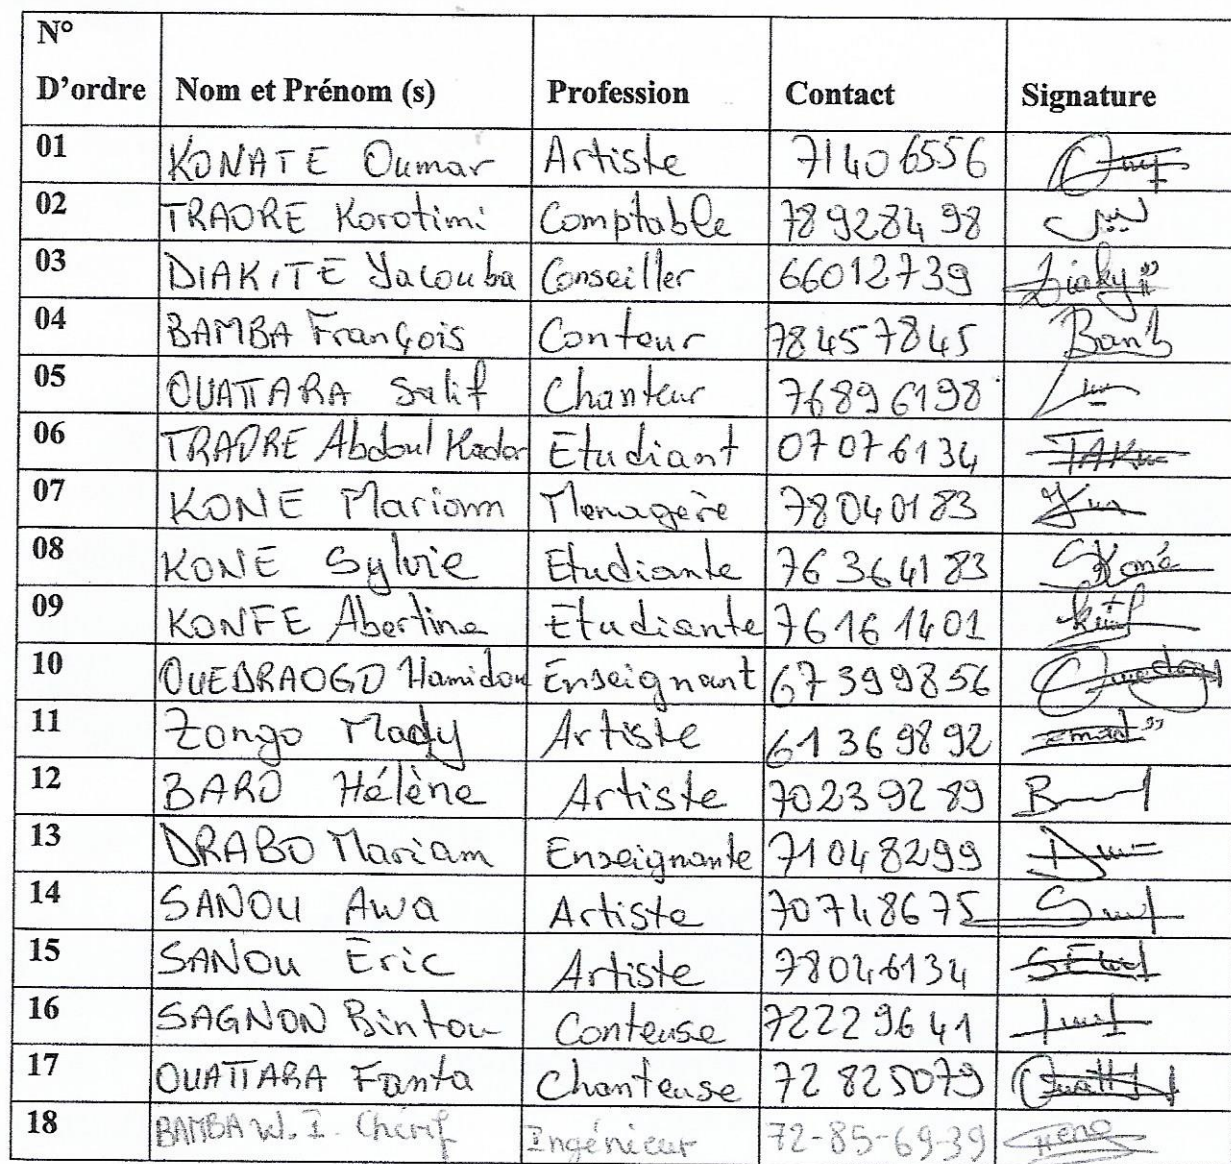 N°
D'ordre Nom et Prénom (s) Profession Contact Signature
01 KONATE Oumar Artiste 71406556
02 TRAORE Korotimi Comptable 78928498
03 DIAKITE Yacouba Conseiller 66012739
04 BAMBA François Conteur 78457845
05 OUATTARA Salif Chanteur 76896198
06 TRAORE Abdoul Kader Etudiant 07076134 TAK
07 KONE Mariam Menagère 78040183
08 KONE Sylvie Etudiante 76364183 SKoné
09 KONFE Abertine Etudiante 76161401
10 OUEDRAOGO Hamidou Enseignant 67399856
11 Zongo Mady Artiste 61369892
12 BARO Hélène Artiste 70239289
13 DRABO Mariam Enseignante 71048299
14 SANOU Awa Artiste 70748675
15 SANOU Eric Artiste 78046134
16 SAGNON Bintou Conteuse 72229641
17 OUATTARA Fanta Chanteuse 72825079
18 BAMBA W. I. Chérif Ingénieur 72-85-69-39